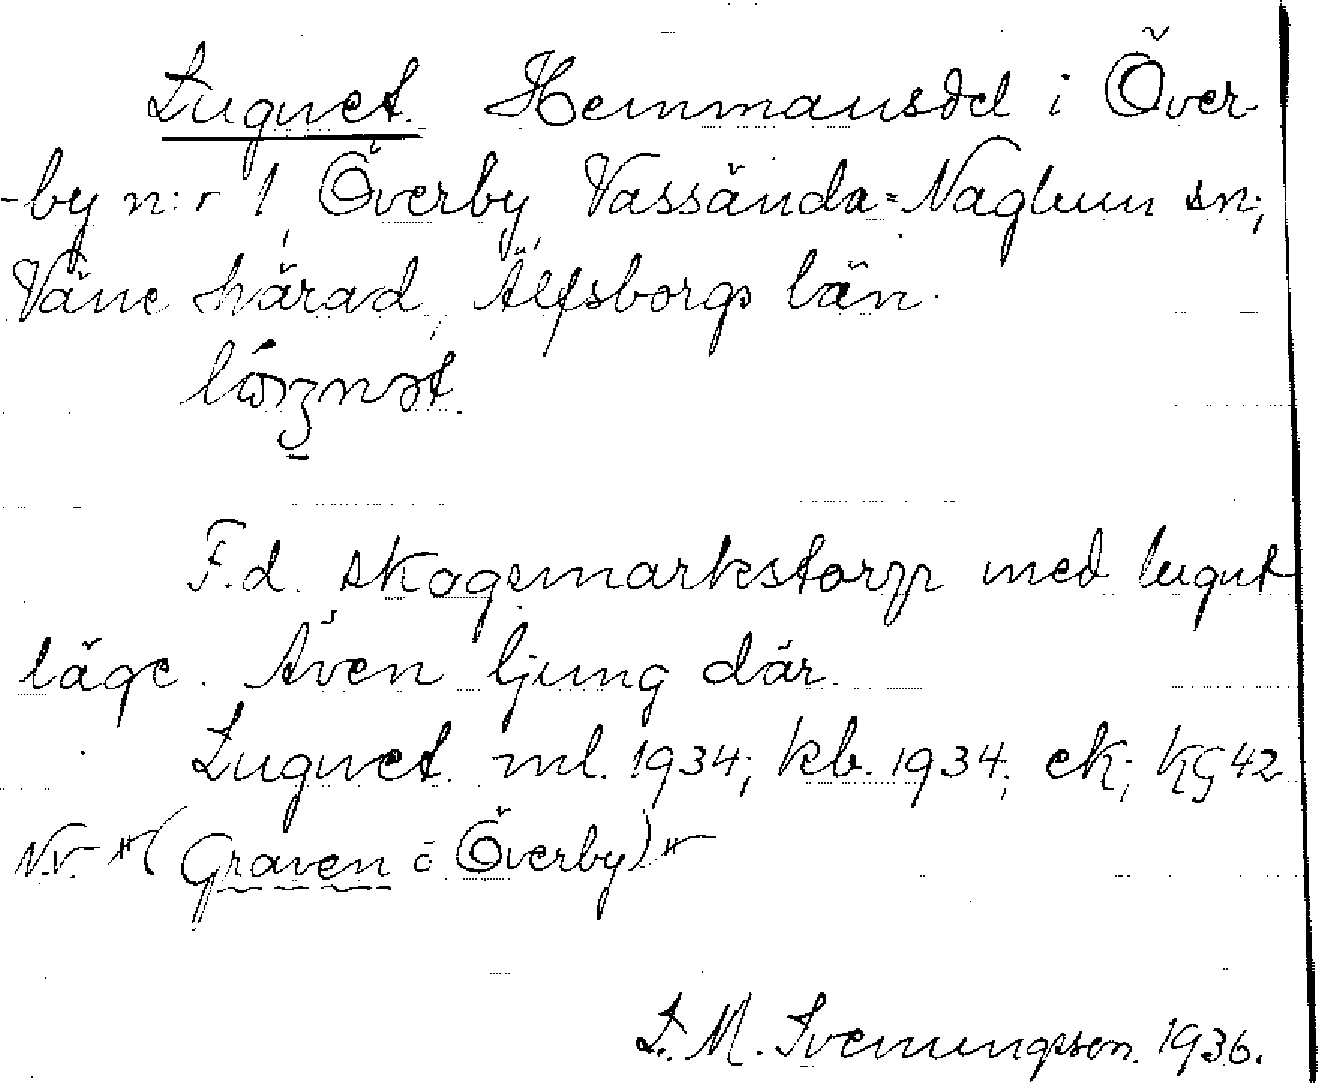 Lugnet. Hemmansdel i Över-
-by n:r 1, Överby, Vassända-Naglum sn;
Väne härad, Älfsborgs län.
F.d. skogsmarkstorp med lugnt
läge. Även ljung där.
Lugnet. ml. 1934; kb. 1934; ek;
N.v. (Graven å Överby)
L. M. Svenungsson. 1936.